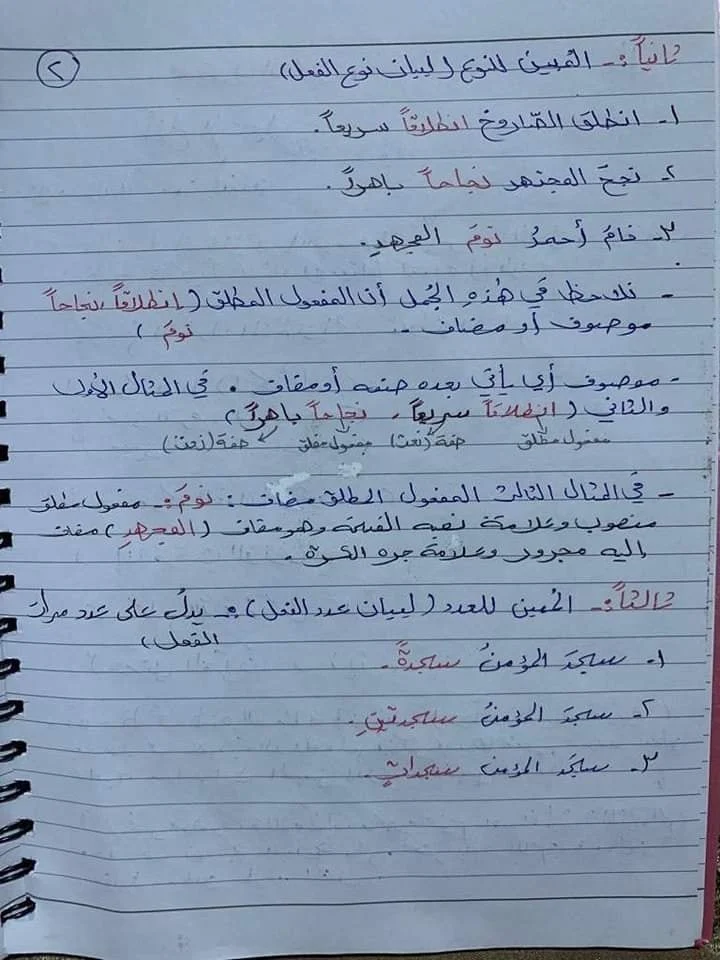 ٢
ثانياً :- المبين للنوع (لبيان نوع الفعل)
١- انطلق الصاروخ انطلاقاً سريعاً.
٢- نجحَ المجتهد نجاحاً باهراً.
٣- نامَ أحمدُ نومَ المجهدِ.
- نلاحظ في هذهِ الجُمل أن المفعول المطلق (انطلاقاً، نجاحاً
موصوف أو مضاف .. نومَ)
- موصوف أي يأتي بعده صفه أو مضاف . في المثال الأول
والثاني (انطلاقاً سريعاً ، نجاحاً باهراً)
مفعول مطلق صفة (نعت) مفعول مطلق صفة (نعت)
- في المثال الثالث المفعول المطلق مضاف : نومَ :- مفعول مطلق
منصوب وعلامة نصبه الفتحة وهو مضاف (المجهدِ) مضاف
إليه مجرور وعلامة جره الكسرة .
ثالثاً :- المُبين للعدد (لبيان عدد الفعل) :- يدلُ على عدد مرات
الفعل)
١- سجدَ المؤمنُ سجدةً.
٢- سجدَ المؤمنُ سجدتينِ.
٣- سجَد المؤمن سجداتٍ.